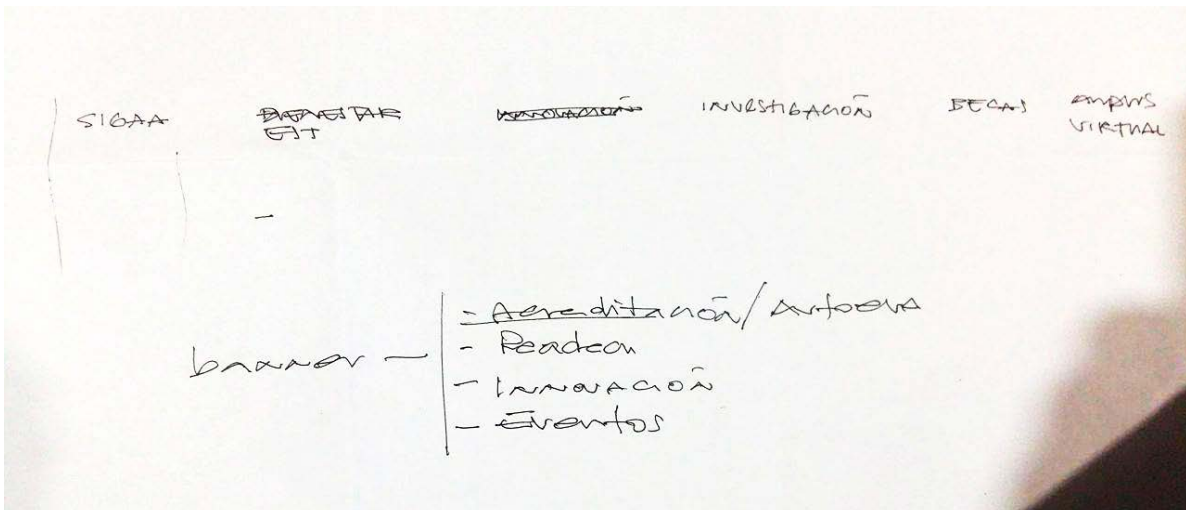 SIGAA BIENESTAR INNOVACIÓN INVESTIGACIÓN BECAS CAMPUS
EST VIRTUAL
-
banner — - Acreditación / Autoeva
- Readecu
- INNOVACIÓN
- Eventos